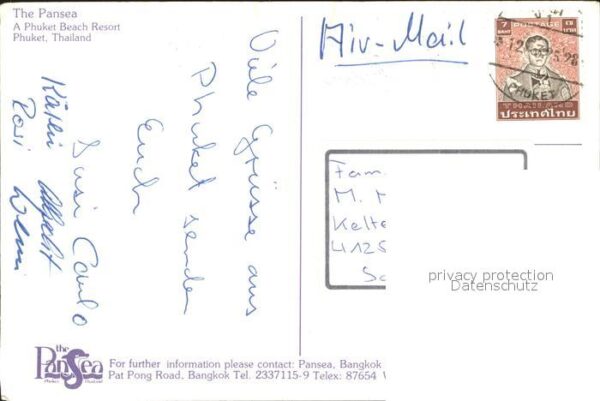 The Pansea
A Phuket Beach Resort
Phuket, Thailand
Viele Grüsse aus
Phuket senden
Euch
Susi Carlo
Käthi
Rosi
Air-Mail
7
BAHT
POSTAGE
บาท
PHUKET
THAILAND
ประเทศไทย
Fam.
M.
Kelte
4125
privacy protection
Datenschutz
the
PanSea
For further information please contact: Pansea, Bangkok
Pat Pong Road, Bangkok Tel. 2337115-9 Telex: 87654